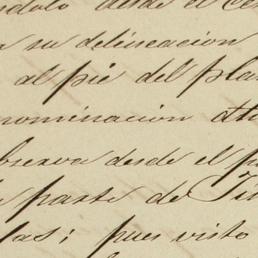 desde el
su delineacion
al pie del pla
nominacion
bserva desde el
parte de
las; pues visto